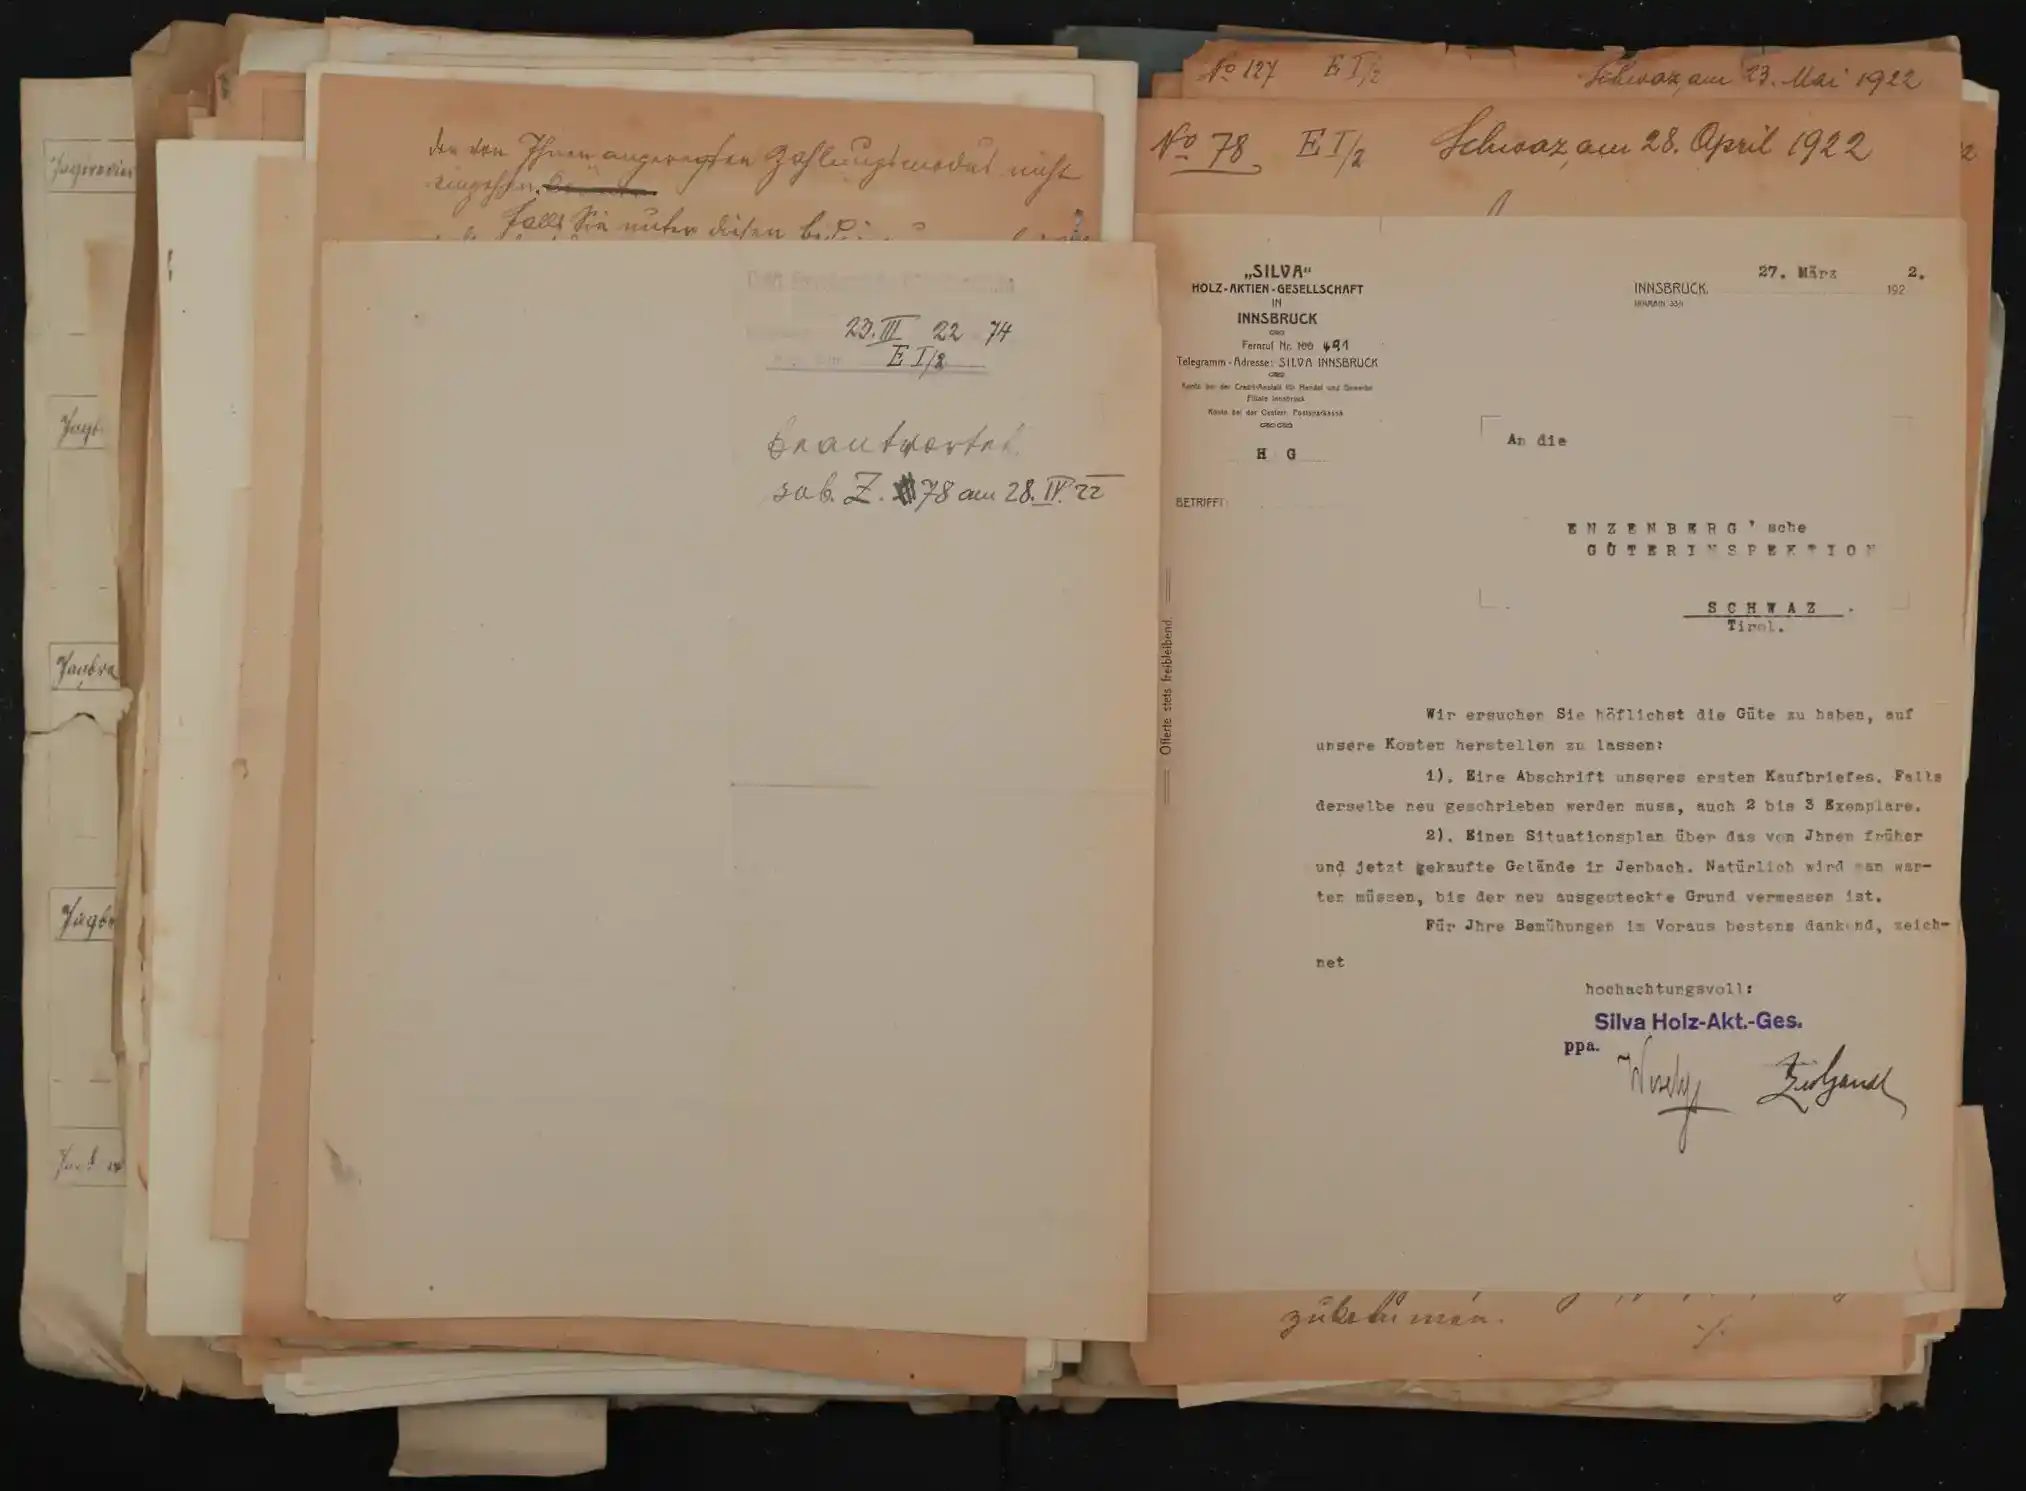 den von Ihnen angeregten Zahlungsmodus nicht
eingehen.
Falls Sie unter diesen
23. III 22 74
E I/2
beantwortet
sub. Z. 78 am 28. IV. 22
No 127 E I/2 Schwaz, am 23. Mai 1922
No 78 E I/2 Schwaz, am 28. April 1922
„SILVA“
HOLZ-AKTIEN-GESELLSCHAFT
IN
INNSBRUCK
Fernruf Nr. 100 491
Telegramm-Adresse: SILVA INNSBRUCK
Konto bei der Credit-Anstalt für Handel und Gewerbe
Filiale Innsbruck
Konto bei der Oesterr. Postsparkassa
H G
BETRIFFT:
INNSBRUCK, 27. März 192 2.
An die
ENZENBERG'sche
GÜTERINSPEKTION
SCHWAZ.
Tirol.
Offerte stets freibleibend.
Wir ersuchen Sie höflichst die Güte zu haben, auf
unsere Kosten herstellen zu lassen:
1). Eine Abschrift unseres ersten Kaufbriefes. Falls
derselbe neu geschrieben werden muss, auch 2 bis 3 Exemplare.
2). Einen Situationsplan über das von Jhnen früher
und jetzt gekaufte Gelände in Jenbach. Natürlich wird man war-
ten müssen, bis der neu ausgesteckte Grund vermessen ist.
Für Jhre Bemühungen im Voraus bestens dankend, zeich-
net
hochachtungsvoll:
Silva Holz-Akt.-Ges.
ppa.
zukommen.
Jagdrevier